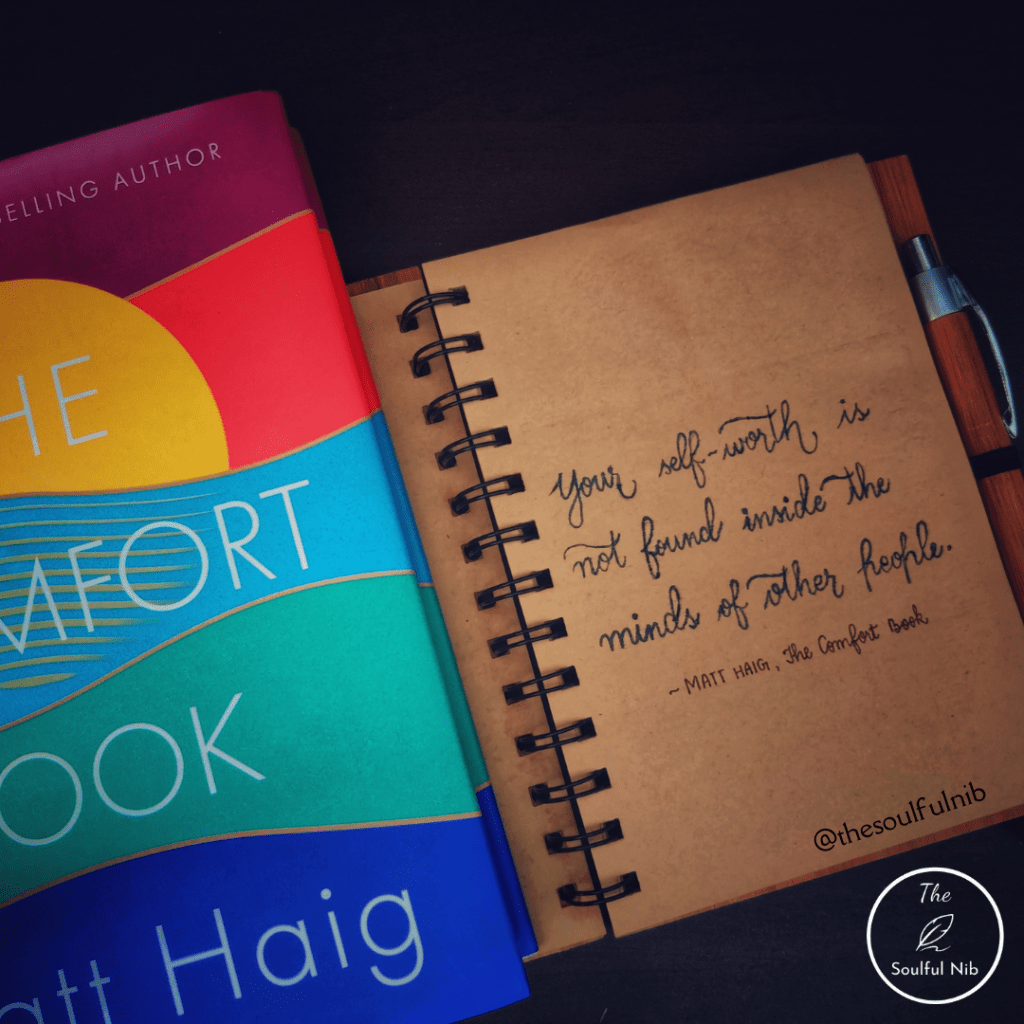 SELLING AUTHOR
HE
MFORT
OOK
att Haig
your self-worth is
not found inside the
minds of other people.
~ MATT HAIG, The Comfort Book
@thesoulfulnib
The
Soulful Nib